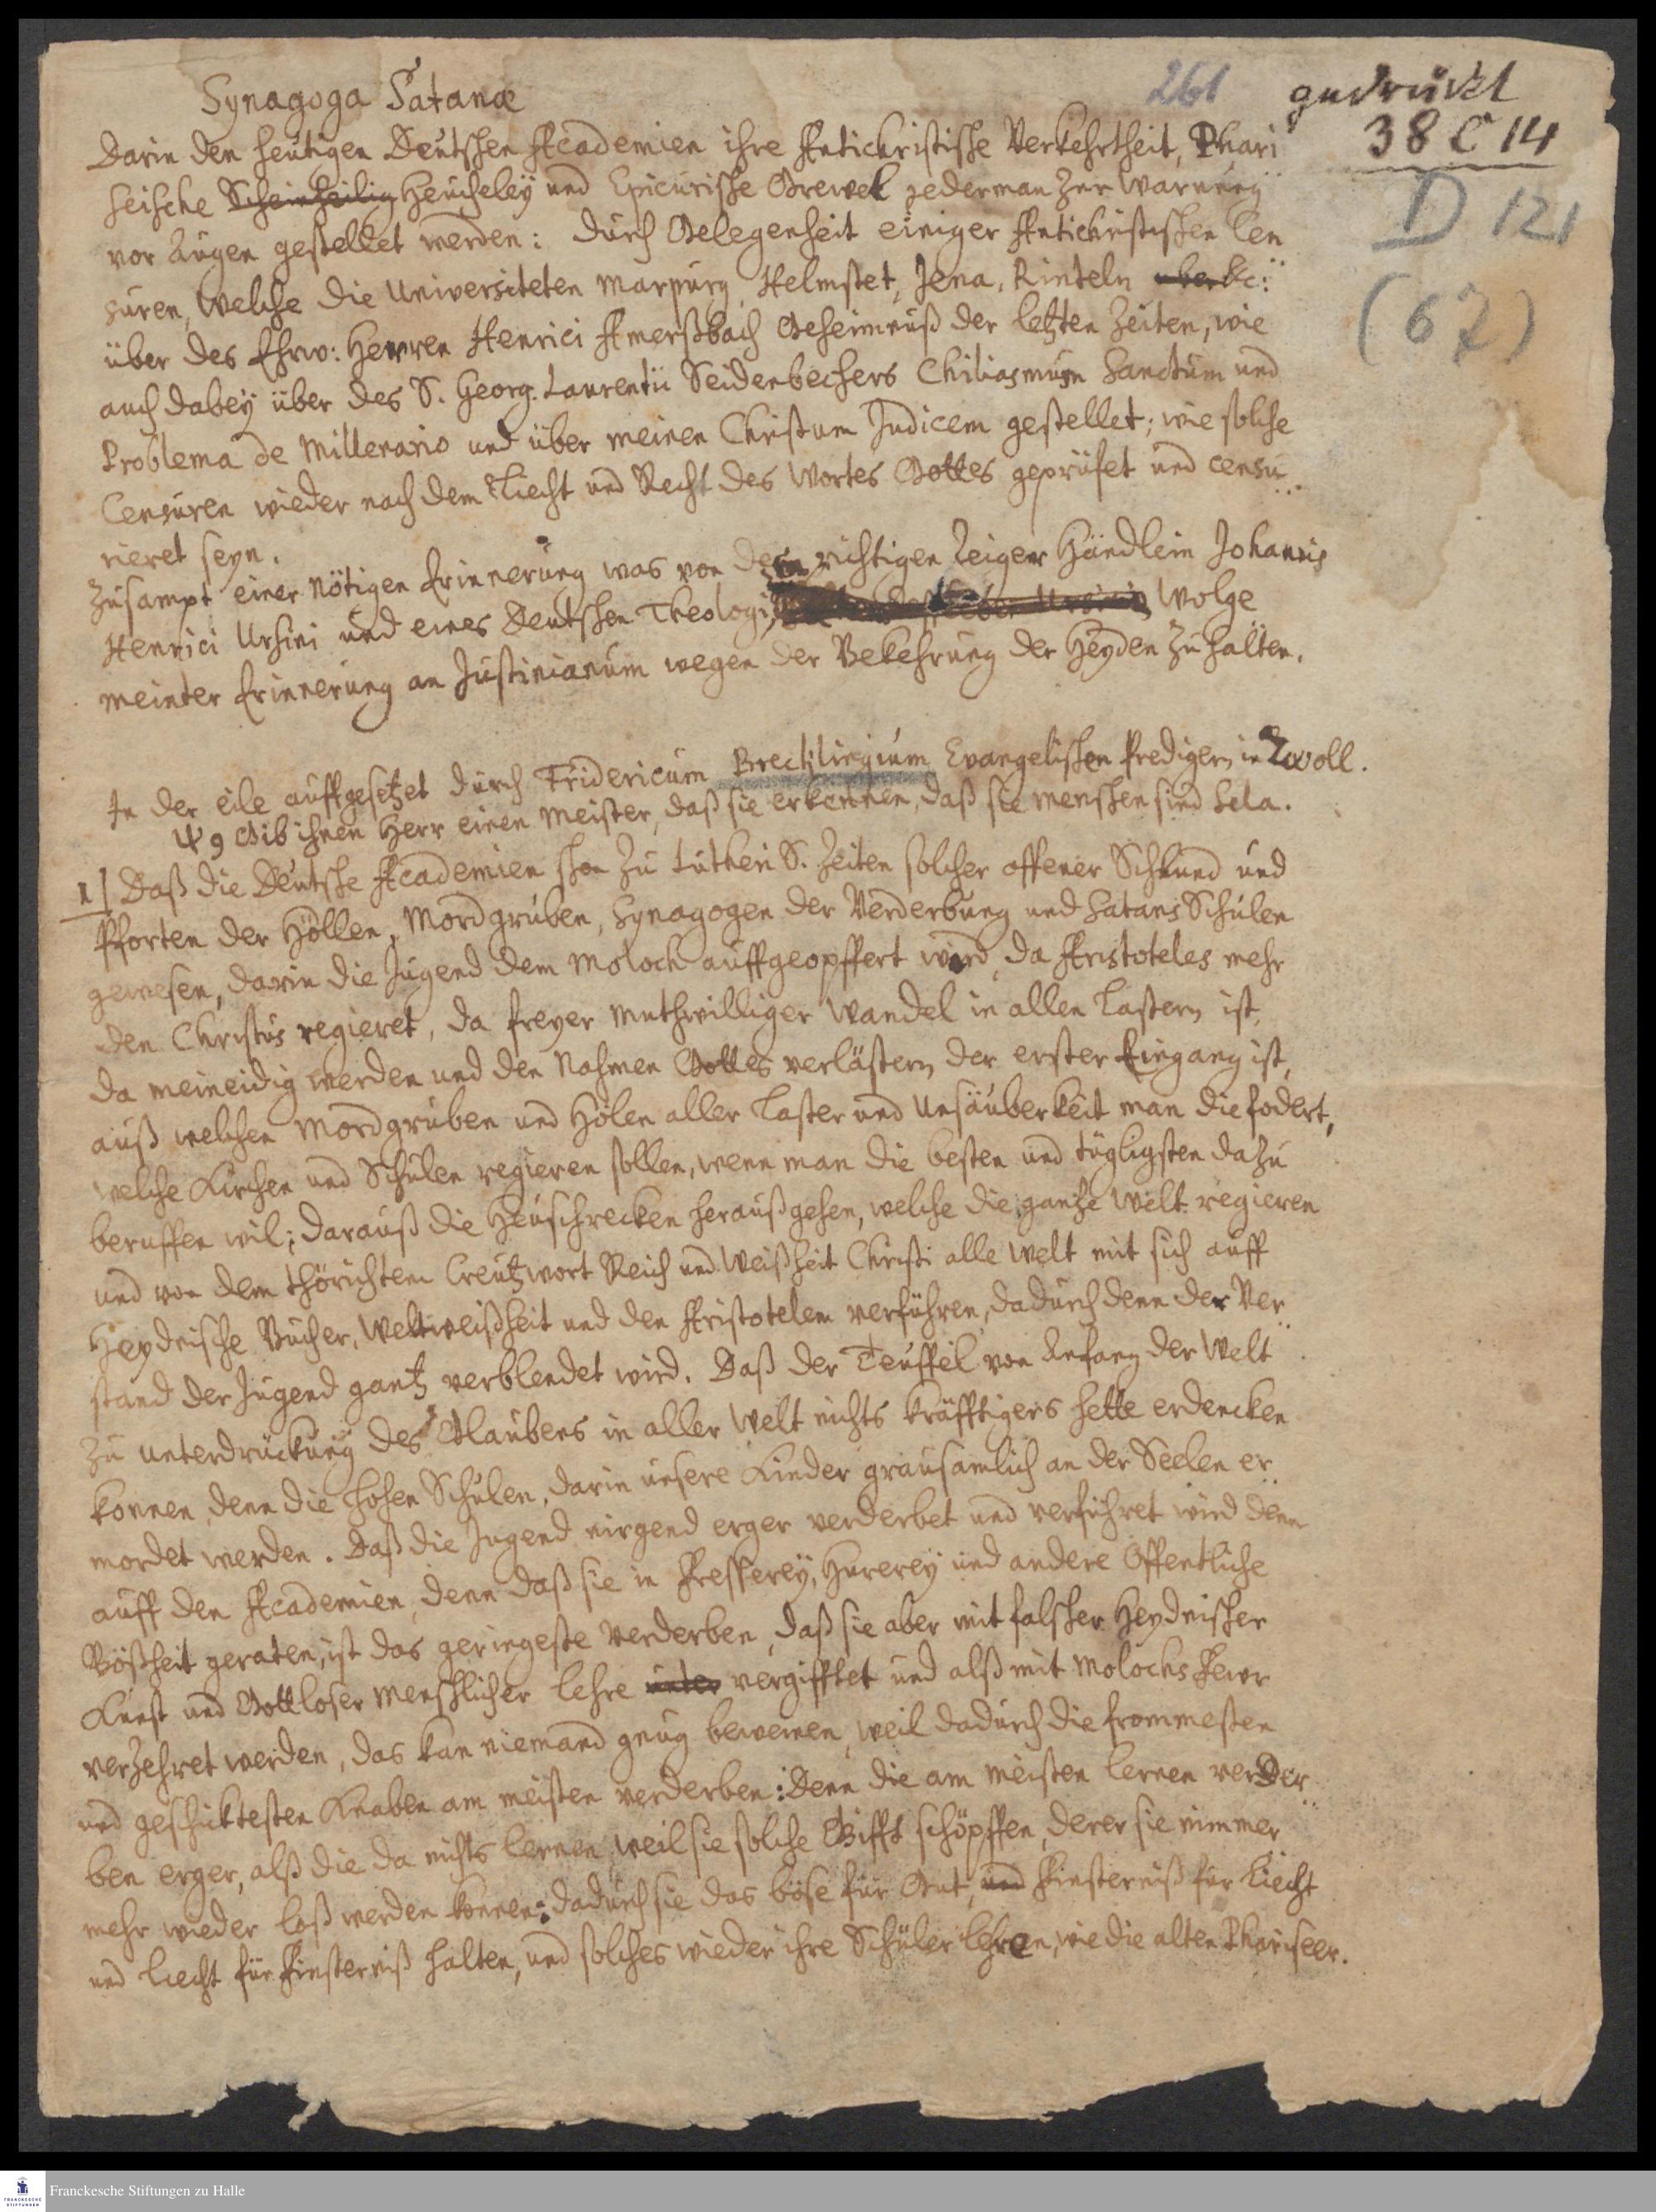 Synagoga Satanæ
261
gedruckt
38 C 14
D 121
(67)
Darin den heutigen Deutschen Academien ihre Antichristische Verkehrtheit, Phari
seische Scheinheilig Heucheley und Epicurische Grewel jederman zur warnung
vor Augen gestellet werden: durch Gelegenheit einiger Antichristischen Cen
suren, welche die Universiteten Marpurg, Helmstet, Jena, Rinteln &c:
über des Ehrw: Herren Henrici Amerßbach Geheimnuß der letzten Zeiten, wie
auch dabey über des S. Georg. Laurentii Seidenbechers Chiliasmum Sanctum und
Problema de Millenario und über meinen Christum Judicem gestellet; wie solche
Censuren wieder nach dem Liecht und Recht des Wortes Gottes geprüfet und censu
rieret seyn.
Zusampt einer nötigen Erinnerung was von dem richtigen Zeiger Händlein Johannis
Henrici Ursini und eines Deutschen Theologi, Wolge
meinter Erinnerung an Justinianum wegen der Bekehrung der Heyden zu halten.
In der eile auffgesetzet durch Fridericum Brecklingium Evangelischen Predigern in Zwoll.
Ψ 9 Gib ihnen Herr einen Meister, daß sie erkennen, daß sie menschen sind Sela.
1 Daß die Deutsche Academien schon zu Lutheri S. Zeiten solcher offener Schlund und
Pforten der Höllen, Mordgruben, Synagogen der Verderbung und Satans Schulen
gewesen, darin die Jugend dem Moloch auffgeopffert wird, da Aristoteles mehr
den Christus regieret, da freyer muthwilliger wandel in allen Lastern ist,
da meineidig werden und den Nahmen Gottes verlästern der erster Eingang ist,
auß welchen Mordgruben und Hölen aller Laster und Unsäuberkeit man die fodert,
welche Kirchen und Schulen regieren sollen, wenn man die besten und tüglichsten dazu
beruffen wil; darauß die Heuschrecken heraußgehen, welche die gantze Welt regieren
und von dem thörichtem Creutzwort Reich und Weißheit Christi alle Welt mit sich auff
Heydnische Bücher, Weltweißheit und den Aristotelem verführen, dadurch denn der Ver
stand der Jugend gantz verblendet wird. Daß der Teuffel von Anfang der Welt
zu unterdrückung des Glaubens in aller Welt nichts kräfftigers hette erdencken
konnen, denn die hohen Schulen, darin unsere Kinder grausamlich an der Seelen er
mordet werden. Daß die Jugend nirgend erger verderbet und verführet wird denn
auff den Academien, denn daß sie in Fresserey, Hurerey und andere Offentliche
Bößheit geraten, ist das geringeste Verderben, daß sie aber mit falscher Heydnischer
Kunst und Gottloser menschlicher Lehre unter vergifftet und alß mit Molochs Fewr
verzehret werden, das kan niemand gnug beweinen, weil dadurch die frommesten
und geschicktesten Knaben am meisten verderben: Denn die am meisten lernen verder
ben erger, alß die da nichts lernen weil sie solche Gifft schöpffen, derer sie nimmer
mehr wieder loß werden konnen: dadurch sie das böse für Gut, und Finsterniß für Liecht
und Liecht für Finsterniß halten, und solches wieder ihre Schüler lehren, wie die alten Phariseer.
Franckesche Stiftungen zu Halle